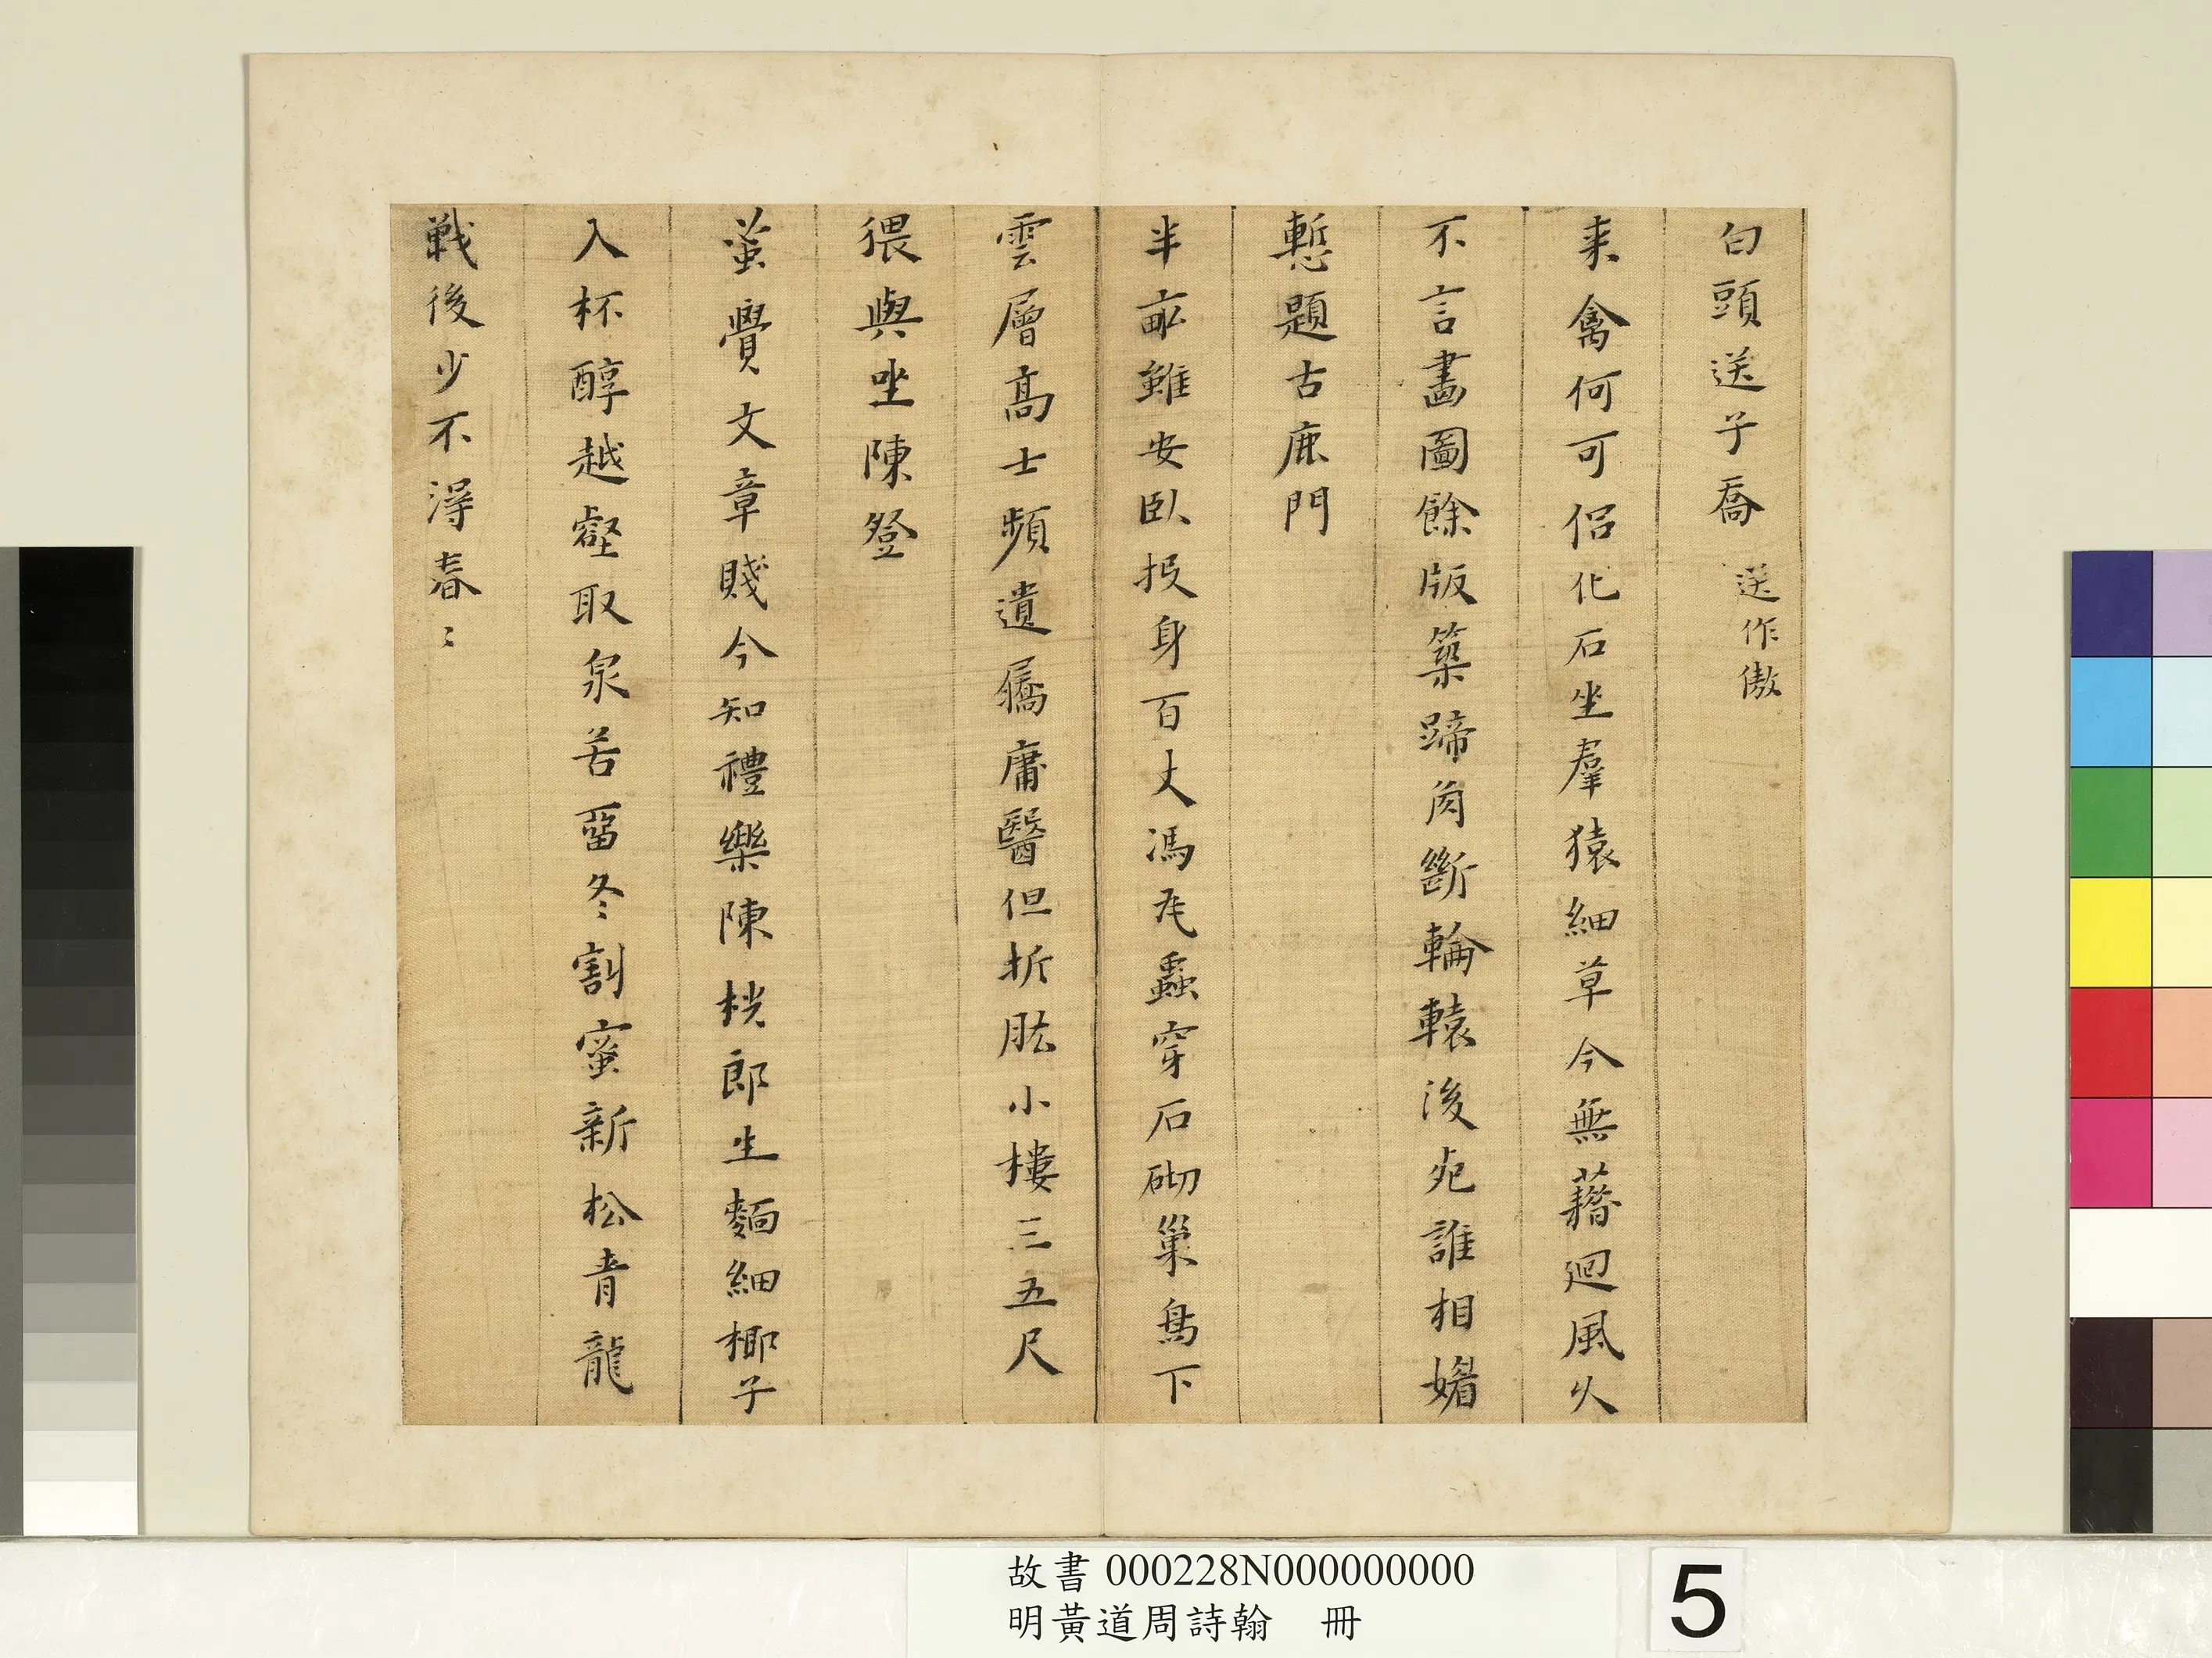 白頭送子喬 送作傲
来禽何可侣化石坐羣猿細草今無藉廻風火
不言畵圖餘版築蹄角斷輪轅後宛誰相媚
慙題古鹿門
半畝雖安臥投身百丈馮尨蟲穿石砌巢鳥下
雲層高士頻遺屩庸醫但折肱小樓三五尺
猥與坐陳登
蚤覺文章賤今知禮樂陳桄郎生麵細椰子
入杯醇越壑取泉苦畱冬割蜜新松青龍
戰後少不得春〻
故書 000228N000000000
明黃道周詩翰 冊
5